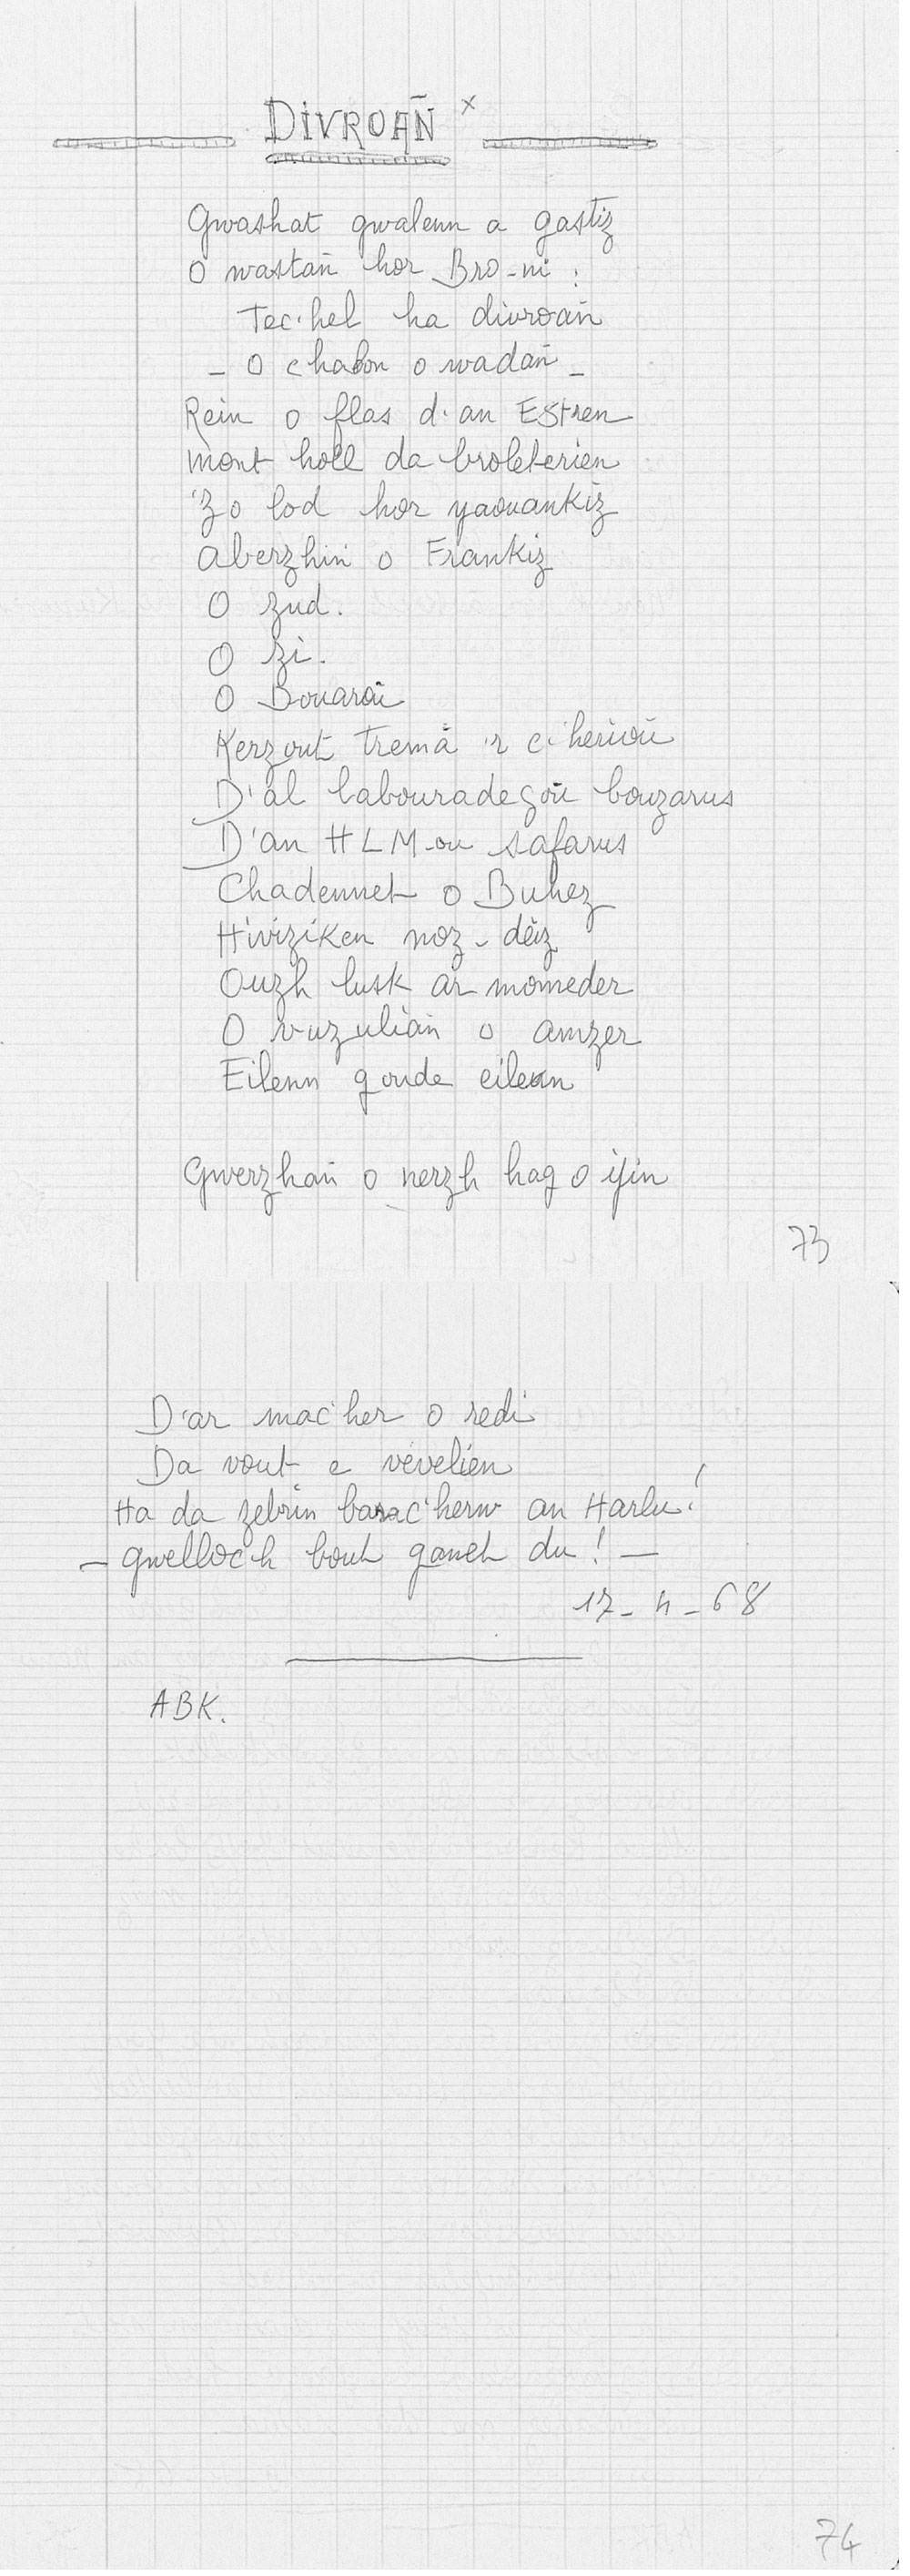 DIVROAÑ x
Gwashat gwalenn a gastiz
O wastañ hor Bro-ni :
Tec'hel ha divroañ
- O chabon o wadañ -
Rein o flas d'an Estren
Mont holl da broleterien
'Zo lod hor yaouankiz
Aberzhiñ o Frankiz
O zud.
O zi.
O Douaroù
Kerzout tremà 'r c'herioù
D'al labouradegoù bouzarus
D'an HLM-ou safarus
Chadennet o Buhez
Hiviziken noz-deiz
Ouzh lusk ar momeder
O ruzuliañ o amzer
Eilenn goude eilenn
Gwerzhañ o nerzh hag o ijin
73
D'ar mac'her o redi
Da vout e vevelien
Ha da zebriñ barac'herw an Harlu!
- Gwelloc'h bout ganet du ! -
17-4-68
ABK.
74